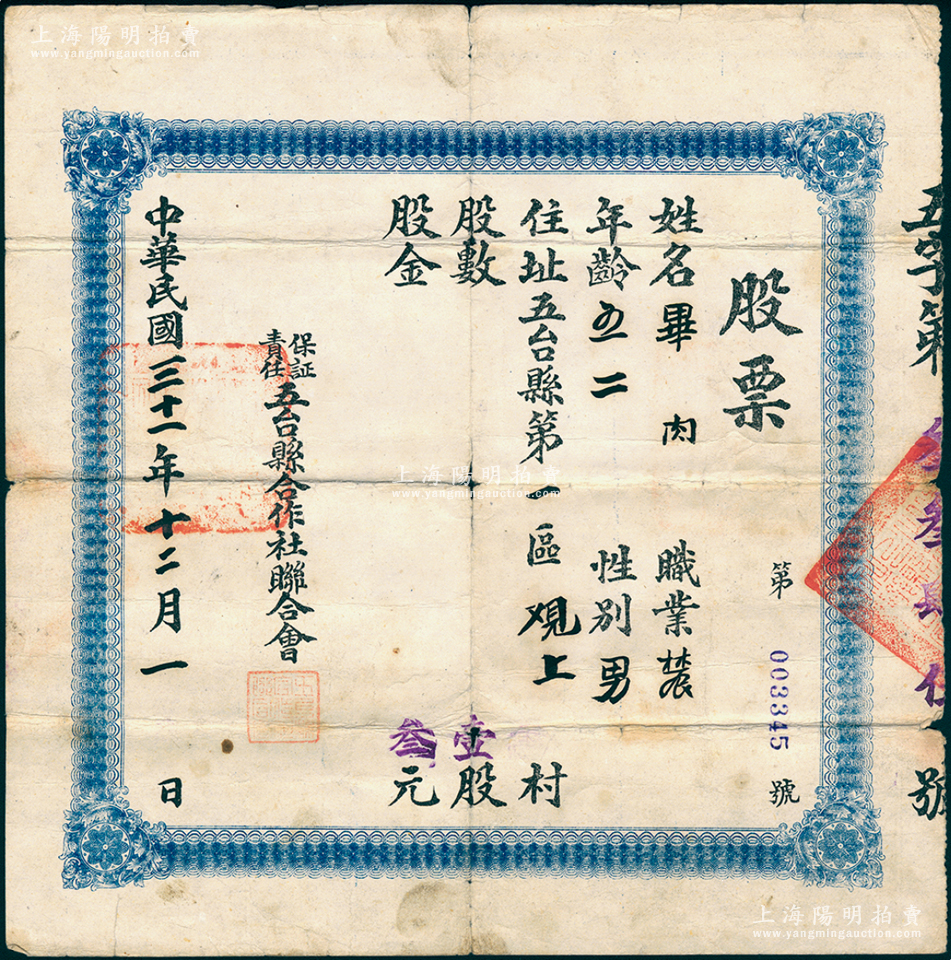 上海陽明拍賣
www.yangmingauction.com
五字第
號
股票
第 003345 號
姓名 畢肉 職業 農
年齡 五二 性別 男
住址 五台縣第一區 观上 村
股數 壹股
股金 叁元
保証責任五台縣合作社聯合會
中華民國三十一年十二月一日
上海陽明拍賣
www.yangmingauction.com
上海陽明拍賣
www.yangmingauction.com